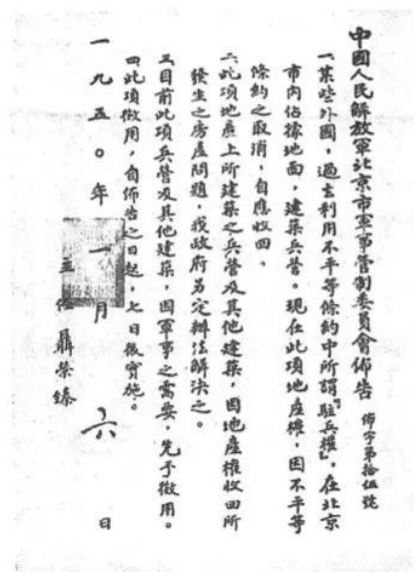 中國人民解放軍北京市軍事管制委員會佈告 佈字第拾伍號
一、某些外國，過去利用不平等條約中所謂「駐兵權」，在北京
市內佔據地面，建築兵營。現在此項地產權，因不平等
條約之取消，自應收回。
二、此項地產上所建築之兵營及其他建築，因地產權收回所
發生之房產問題，我政府另定辦法解決之。
三、目前此項兵營及其他建築，因軍事之需要，先予徵用。
四、此項徵用，自佈告之日起，七日後實施。
主任 聶榮臻
一九五〇年一月六日